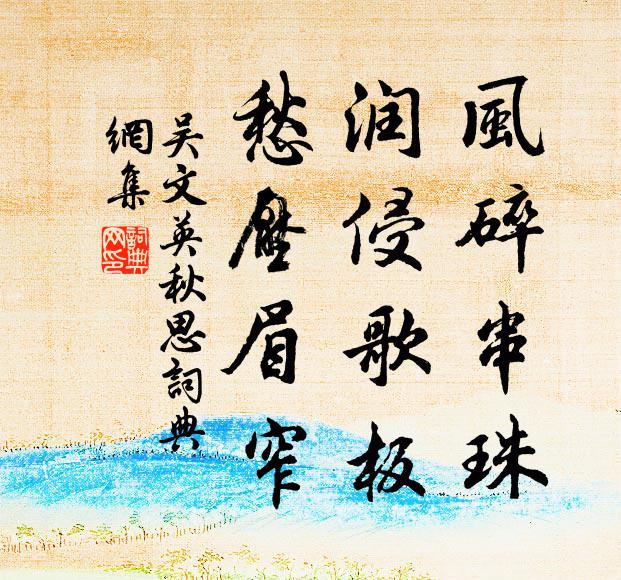 風碎串珠
润侵歌板
愁壓眉窄
吴文英秋思詞典
網集
詞典
网印